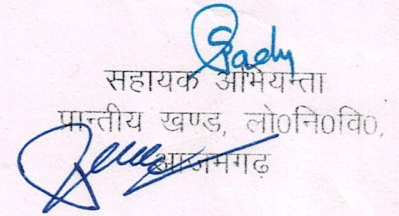 सहायक अभियन्ता
प्रान्तीय खण्ड, लो0नि0वि0,
आजमगढ़